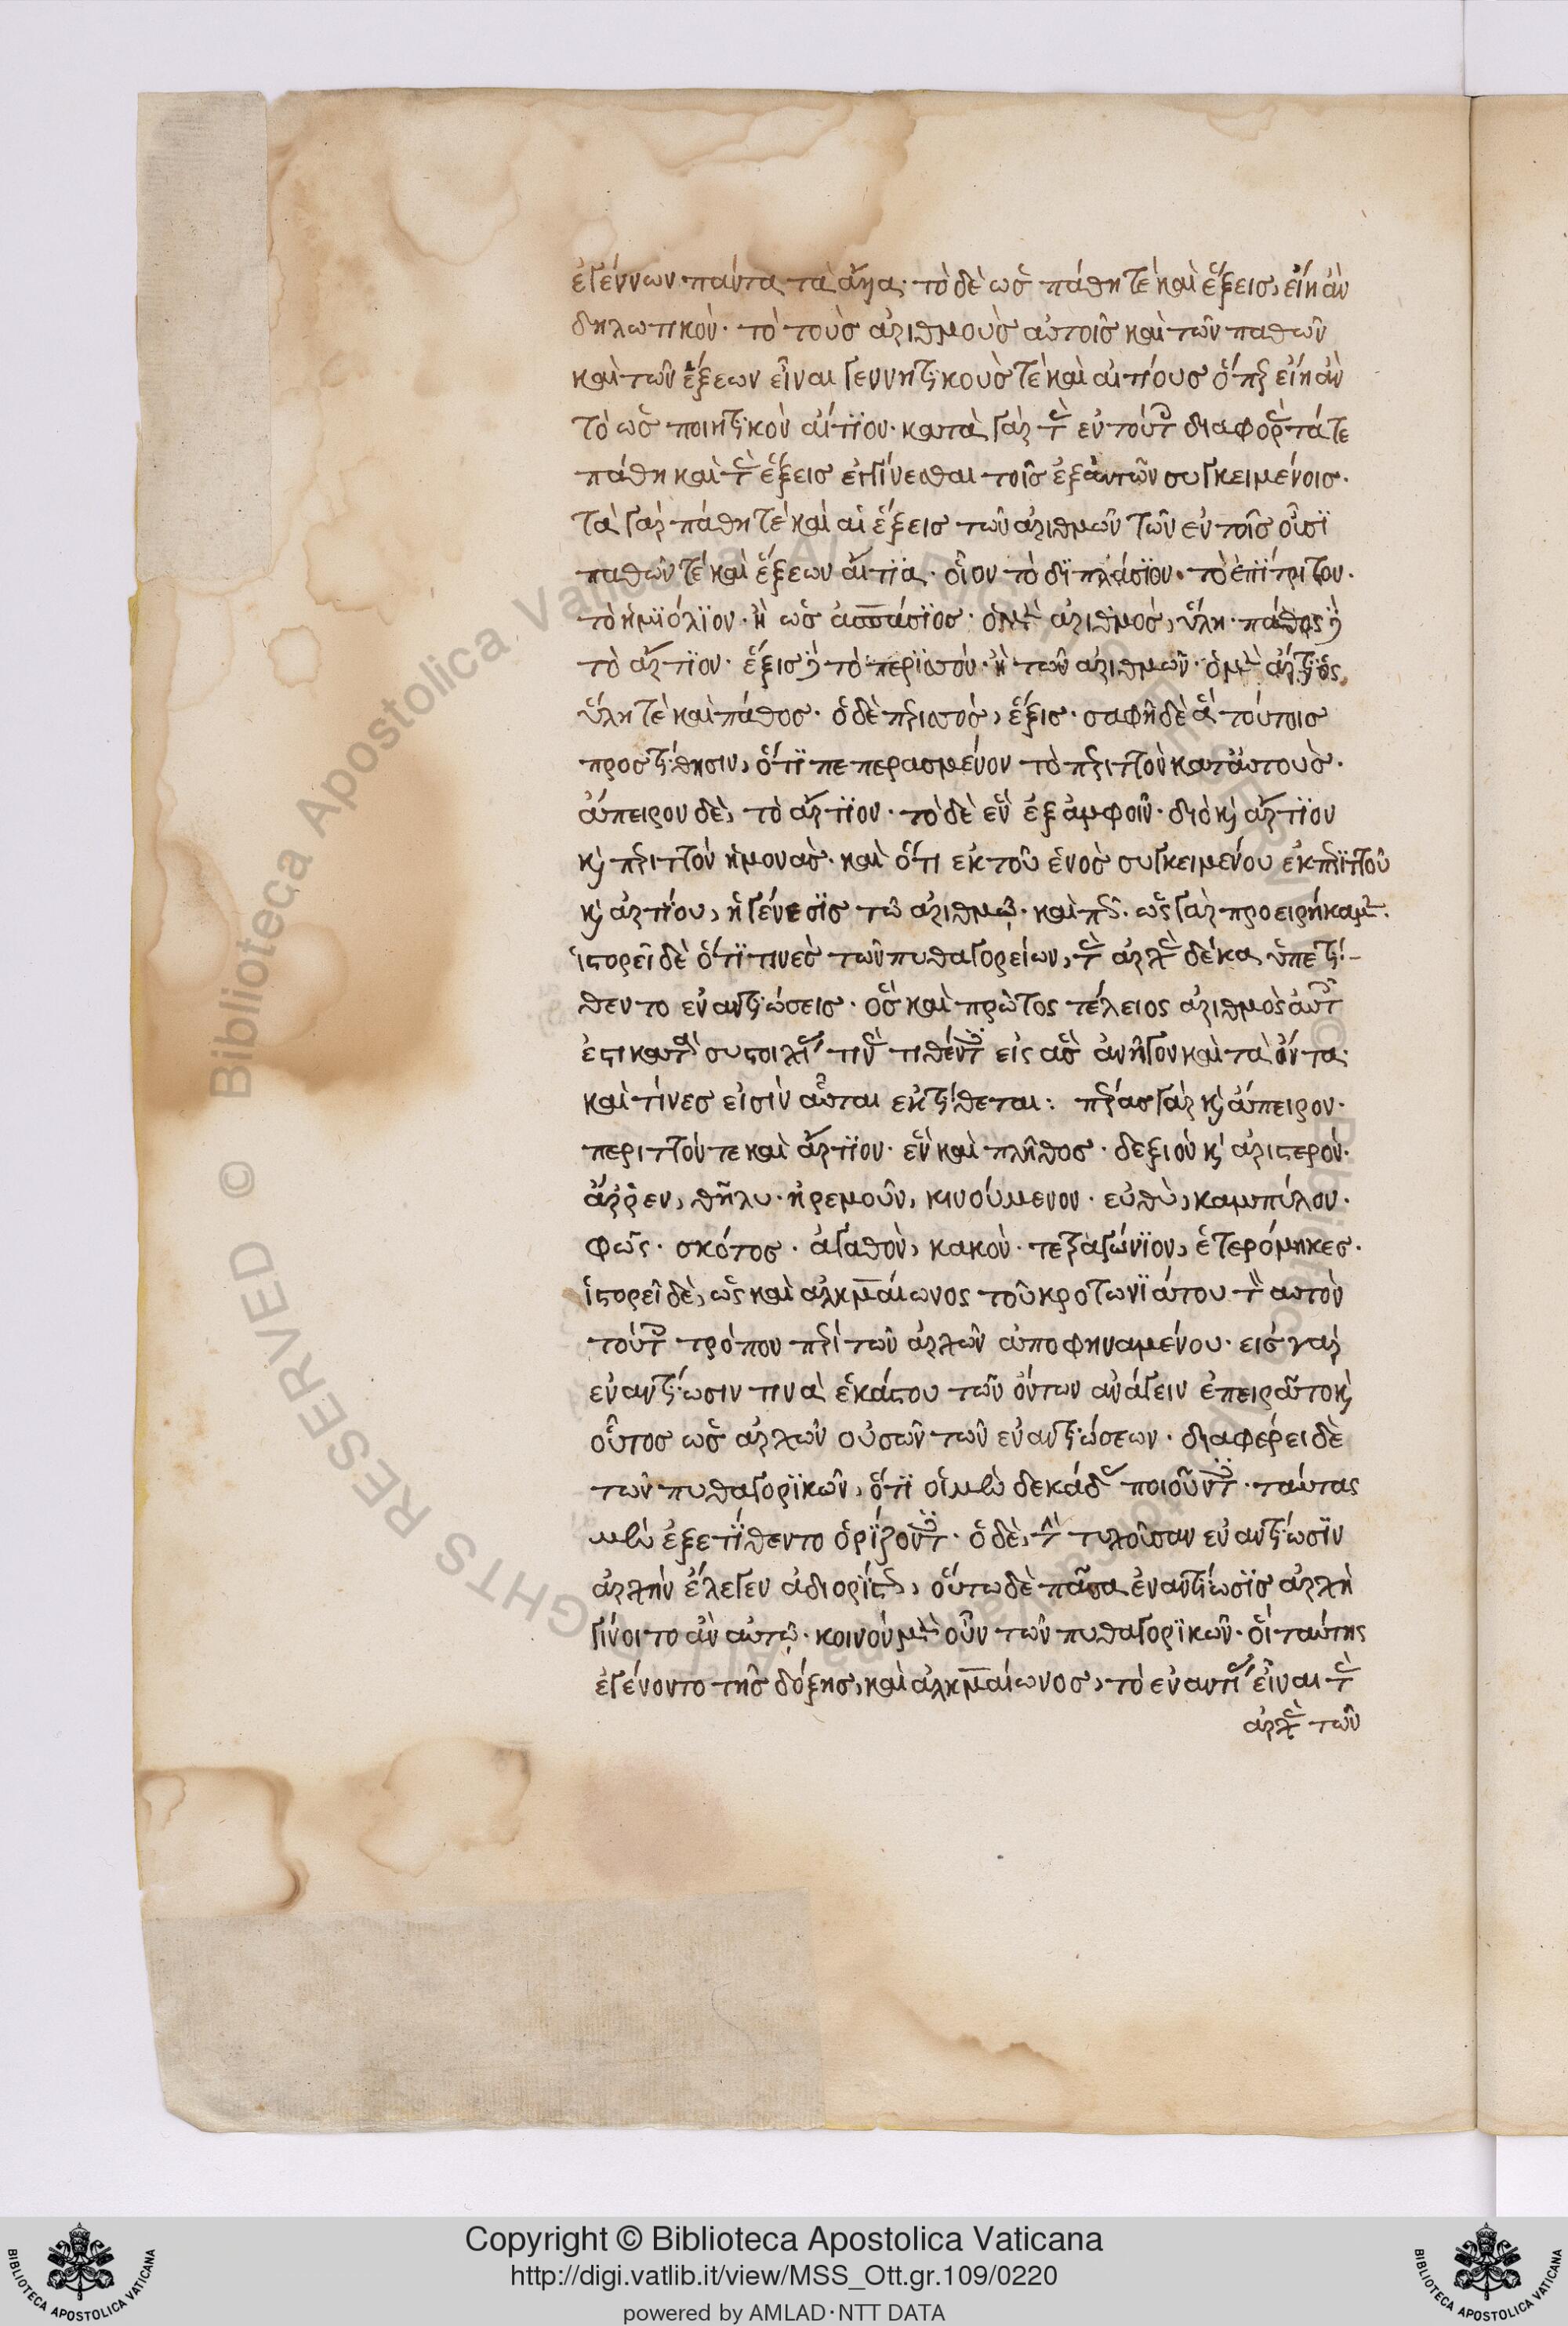 ἐγέννων πάντα τὰ ἄλλα· τὸ δὲ ὡς πάθη τὲ καὶ ἕξεις, εἴη ἂν
δηλωτικὸν· τὸ τοὺς ἀριθμοὺς αὐτοῖς καὶ τῶν παθῶν
καὶ τῶν ἕξεων εἶναι γεννητικοὺς τὲ καὶ αἰτίους ὅπερ εἴη ἂν
τὸ ὡς ποιητικὸν αἴτϊον· κατὰ γὰρ τὰς ἐν τούτοις διαφορὰς τά τε
πάθη καὶ τὰς ἕξεις ἐγγίνεσθαι τοῖς ἐξ αὐτῶν συγκειμένοις·
τὰ γὰρ πάθη τὲ καὶ αἱ ἕξεις τῶν ἀριθμῶν τῶν ἐν τοῖς οὖσϊ
παθῶν τὲ καὶ ἕξεων αἴτϊα· οἷον τὸ δϊπλάσϊον· τὸ ἐπϊτριτον·
τὸ ἡμϊόλϊον· ἢ ὡς ἀσπάσϊος· ὁ μὲν ἀριθμὸς, ὕλη· πάθος δὲ
τὸ ἄρτϊον· ἕξις δὲ τὸ περϊσσόν· ἢ τῶν ἀριθμῶν· ὁ μὲν ἄρτϊος,
ὕλη τὲ καὶ πάθος· ὁ δὲ περισσὸς, ἕξις· σαφῆ δὲ ἃ τούτοις
προστίθησιν, ὅτϊ πεπερασμένον τὸ περιττὸν κατ' αὐτοὺς·
ἄπειρον δὲ, τὸ ἄρτϊον· τὸ δὲ ἓν ἐξ ἀμφοῖν· διὸ καὶ ἄρτϊον
καὶ περιττὸν ἡ μονὰς· καὶ ὅτι ἐκ τοῦ ἑνὸς συγκειμένου ἐκ περϊττοῦ
καὶ ἀρτίου, ἡ γένεσϊς τῶ ἀριθμῶ· ὡς γὰρ προειρήκαμεν·
ἱστορεῖ δὲ ὅτϊ τινὲς τῶν πυθαγορείων, τὰς ἀρχὰς δέκα ὑπετί-
θεντο ἐναντιώσεις· ὃς καὶ πρῶτος τέλειος ἀριθμὸς αὐτοῖς
ἐστι κατὰ συστοιχίαν τινὰ τιθέντες εἰς ἃς ἀνῆγον καὶ τὰ ὄντα·
καὶ τίνες εἰσὶν αὗται ἐκτίθεται: πέρας γὰρ καὶ ἄπειρον·
περιττόν τε καὶ ἄρτϊον· ἓν καὶ πλῆθος· δεξιὸν καὶ ἀριστερὸν·
ἄρρεν, θῆλυ· ἠρεμοῦν, κινούμενον· εὐθὺ, καμπύλον·
φῶς· σκότος· ἀγαθὸν, κακὸν· τετραγώνϊον, ἑτερόμηκες·
ἱστορεῖ δὲ, ὡς καὶ ἀλκμαίωνος τοῦ κροτωνϊάτου τὸν αὐτὸν
τοῦτον τρόπον περὶ τῶν ἀρχῶν ἀποφηναμένου· εἰς γὰρ
ἐναντίωσιν τινὰ ἑκάστου τῶν ὄντων ἀνάγειν ἐπειρᾶτο καὶ
οὗτος ὡς ἀρχῶν οὐσῶν τῶν ἐναντιώσεων· διαφέρει δὲ
τῶν πυθαγορϊκῶν, ὅτϊ οἱ μὲν δεκάδα ποιοῦντες· ταύτας
μὲν ἐξετϊθεντο ὁρϊζοντες· ὁ δὲ, τὴν τυχοῦσαν ἐναντίωσϊν
ἀρχὴν ἔλεγεν ἀδιορίστως, οὕτω δὲ πᾶσα ἐναντίωσϊς ἀρχὴ
γίνοιτο ἂν αὐτῶ· κοινοὺ μὲν οὖν τῶν πυθαγορϊκῶν· οἳ ταύτης
ἐγένοντο τῆς δόξης, καὶ ἀλκμαίωνος, τὸ ἐναντία εἶναι τὰς
ἀρχὰς τῶν
Copyright © Biblioteca Apostolica Vaticana
http://digi.vatlib.it/view/MSS_Ott.gr.109/0220
powered by AMLAD·NTT DATA
BIBLIOTECA APOSTOLICA VATICANA
BIBLIOTECA APOSTOLICA VATICANA